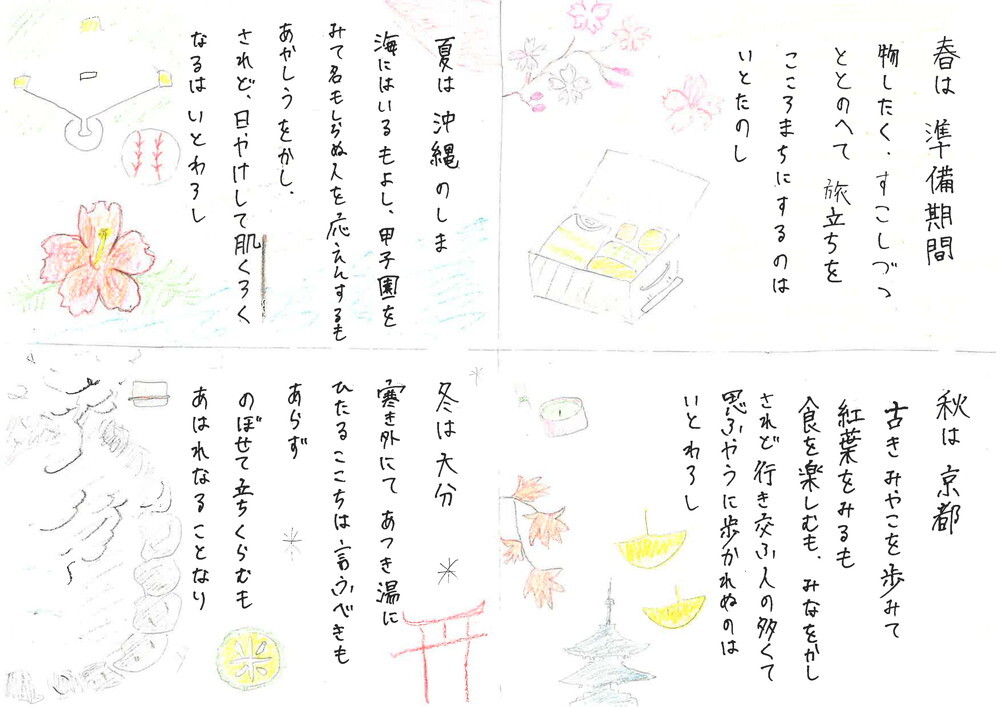 春は 準備期間
物したく、すこしづつ
ととのへて 旅立ちを
こころまちにするのは
いとたのし
夏は 沖縄のしま
海にはいるもよし、甲子園を
みて名もしらぬ人を応えんするも
あかしうをかし、
されど、日やけして肌くろく
なるは いとわろし
秋は 京都
古きみやこを歩みて
紅葉をみるも
食を楽しむも、みなをかし
されど行き交ふ人の多くて
思ふやうに歩かれぬのは
いとわろし
冬は大分
寒き外にて あつき湯に
ひたるここちは言ふべきも
あらず
のぼせて立ちくらむも
あはれなることなり